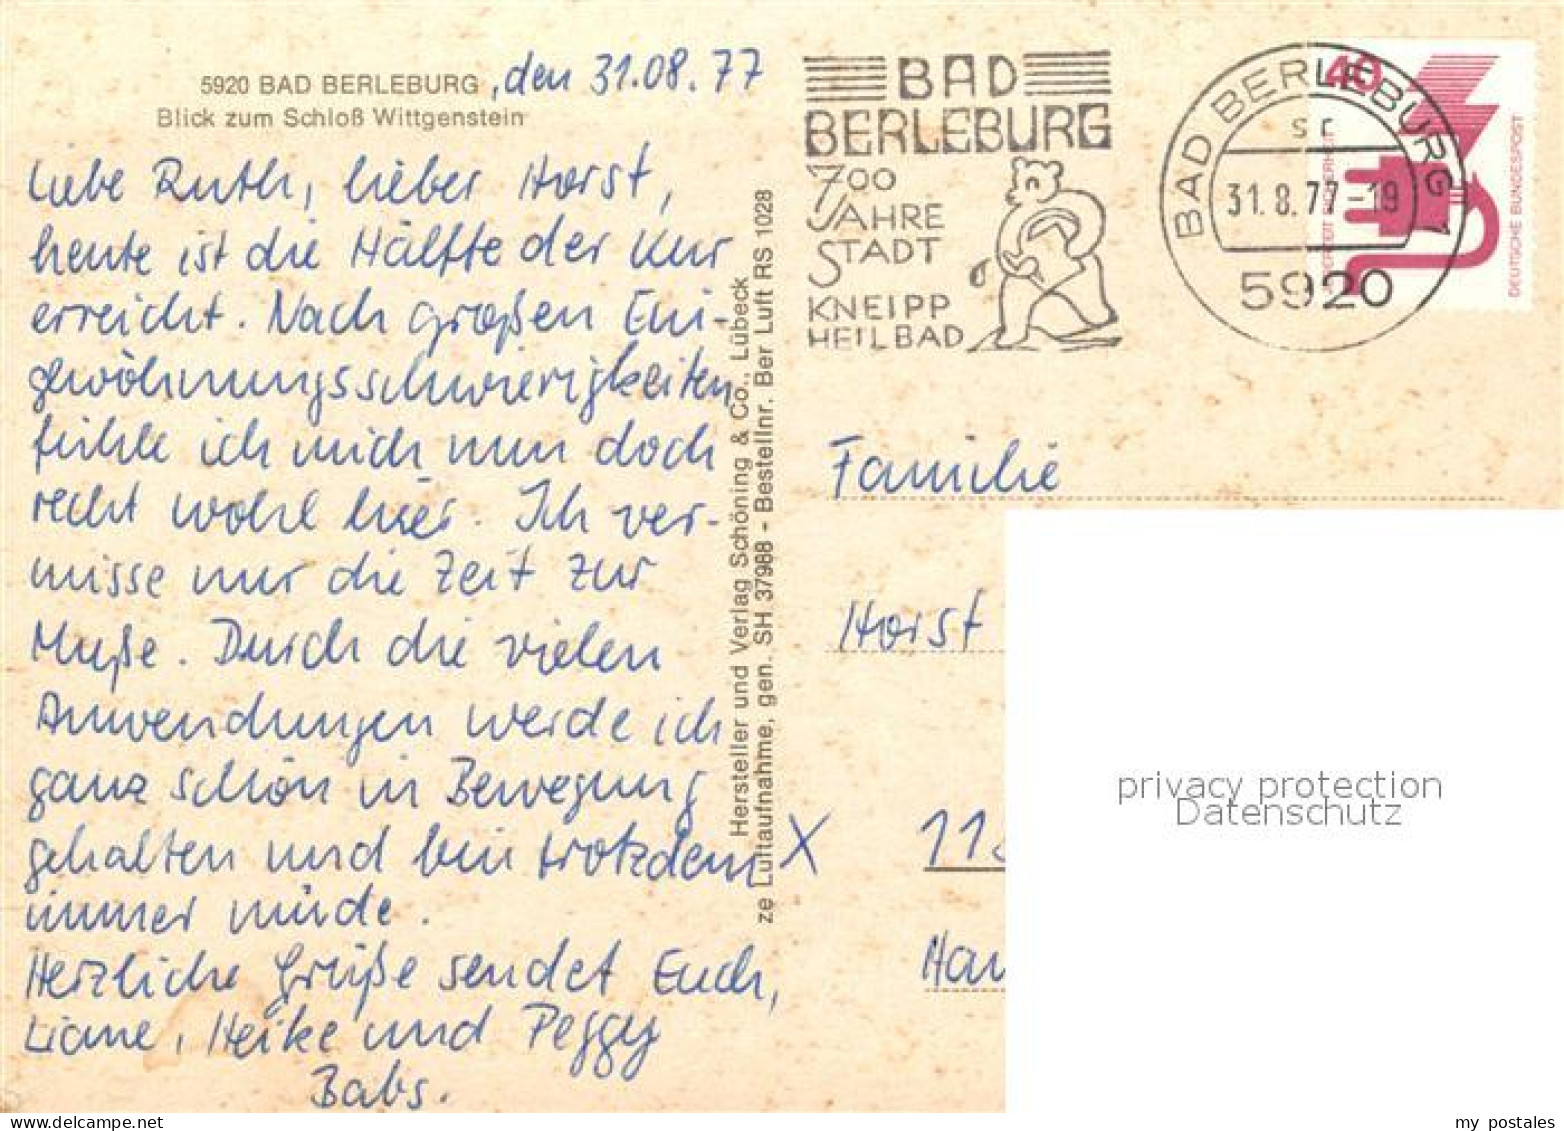 5920 BAD BERLEBURG, den 31.08.77
Blick zum Schloß Wittgenstein
Liebe Ruth, lieber Horst,
heute ist die Hälfte der Kur
erreicht. Nach großen Ein-
gewöhnungsschwierigkeiten
fühle ich mich nun doch
recht wohl hier. Ich ver-
misse nur die Zeit zur
Muße. Durch die vielen
Anwendungen werde ich
ganz schön in Bewegung
gehalten und bin trotzdem
immer müde.
Herzliche Grüße sendet Euch,
Liane, Heike und Peggy
Babs.
Hersteller und Verlag Schöning & Co., Lübeck
ze Luftaufnahme, gen. SH 37988 - Bestellnr. Ber Luft RS 1028
BAD
BERLEBURG
700
JAHRE
STADT
KNEIPP
HEILBAD
BAD BERLEBURG
31.8.77-19
5920
40
DEUTSCHE BUNDESPOST
Familie
Horst
X 11
Han
privacy protection
Datenschutz
my postales